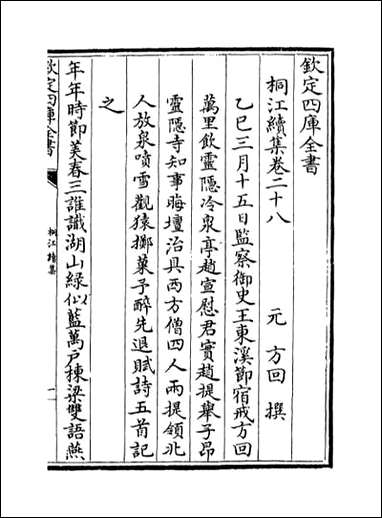 欽定四庫全書
桐江續集卷二十八
元 方回 撰
乙巳三月十五日監察御史王東溪節宿戒方回
萬里飲靈隱冷泉亭趙宣慰君實趙提舉子昂
靈隱寺知事晦壇治具西方僧四人兩提領北
人放泉噴雪觀猿擲菓予醉先退賦詩五首記
之
年年時節美春三誰識湖山緑似藍萬戶棟梁雙語燕
欽定四庫全書
桐江續集
一